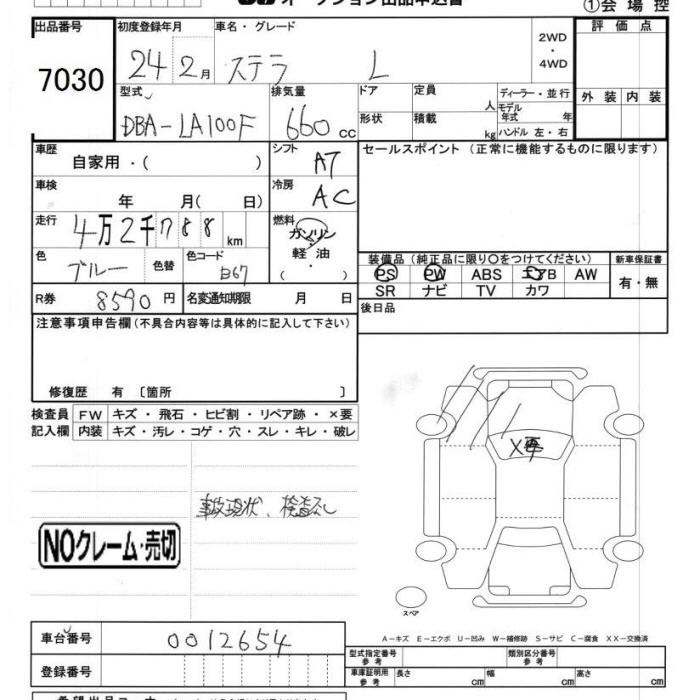 オークション出品申込書 ①会場控
出品番号 初度登録年月 車名・グレード 2WD・4WD 評価点
7030 24 2月 ステラ L
型式 排気量 ドア 定員 人 ディーラー・並行 外装 内装
DBA-LA100F 660cc 形状 積載 kg モデル年式 年 ハンドル 左・右
車歴 自家用・( ) シフト AT セールスポイント (正常に機能するものに限ります)
車検 年 月( 日) 冷房 AC
走行 4万2千788km 燃料 ガソリン・軽油・( )
色 ブルー 色替 色コード B67 装備品 (純正品に限り○をつけてください) 新車保証書
PS PW ABS エアB AW 有・無
SR ナビ TV カワ
R券 8590円 名変通知期限 月 日 後日品
注意事項申告欄(不具合内容等は具体的に記入して下さい)
修復歴 有 〔箇所 〕
検査員 FW キズ・飛石・ヒビ割・リペア跡・×要
記入欄 内装 キズ・汚レ・コゲ・穴・スレ・キレ・破レ
X再
事故現状、検査なし
NOクレーム・売切
スペア
A-キズ E-エクボ U-凹み W-補修跡 S-サビ C-腐食 XX-交換済
車台番号 0012654 型式指定番号 参考 類別区分番号 参考
登録番号 車庫証明用 参考 長さ cm 幅 cm 高さ cm
希望出品コーナー